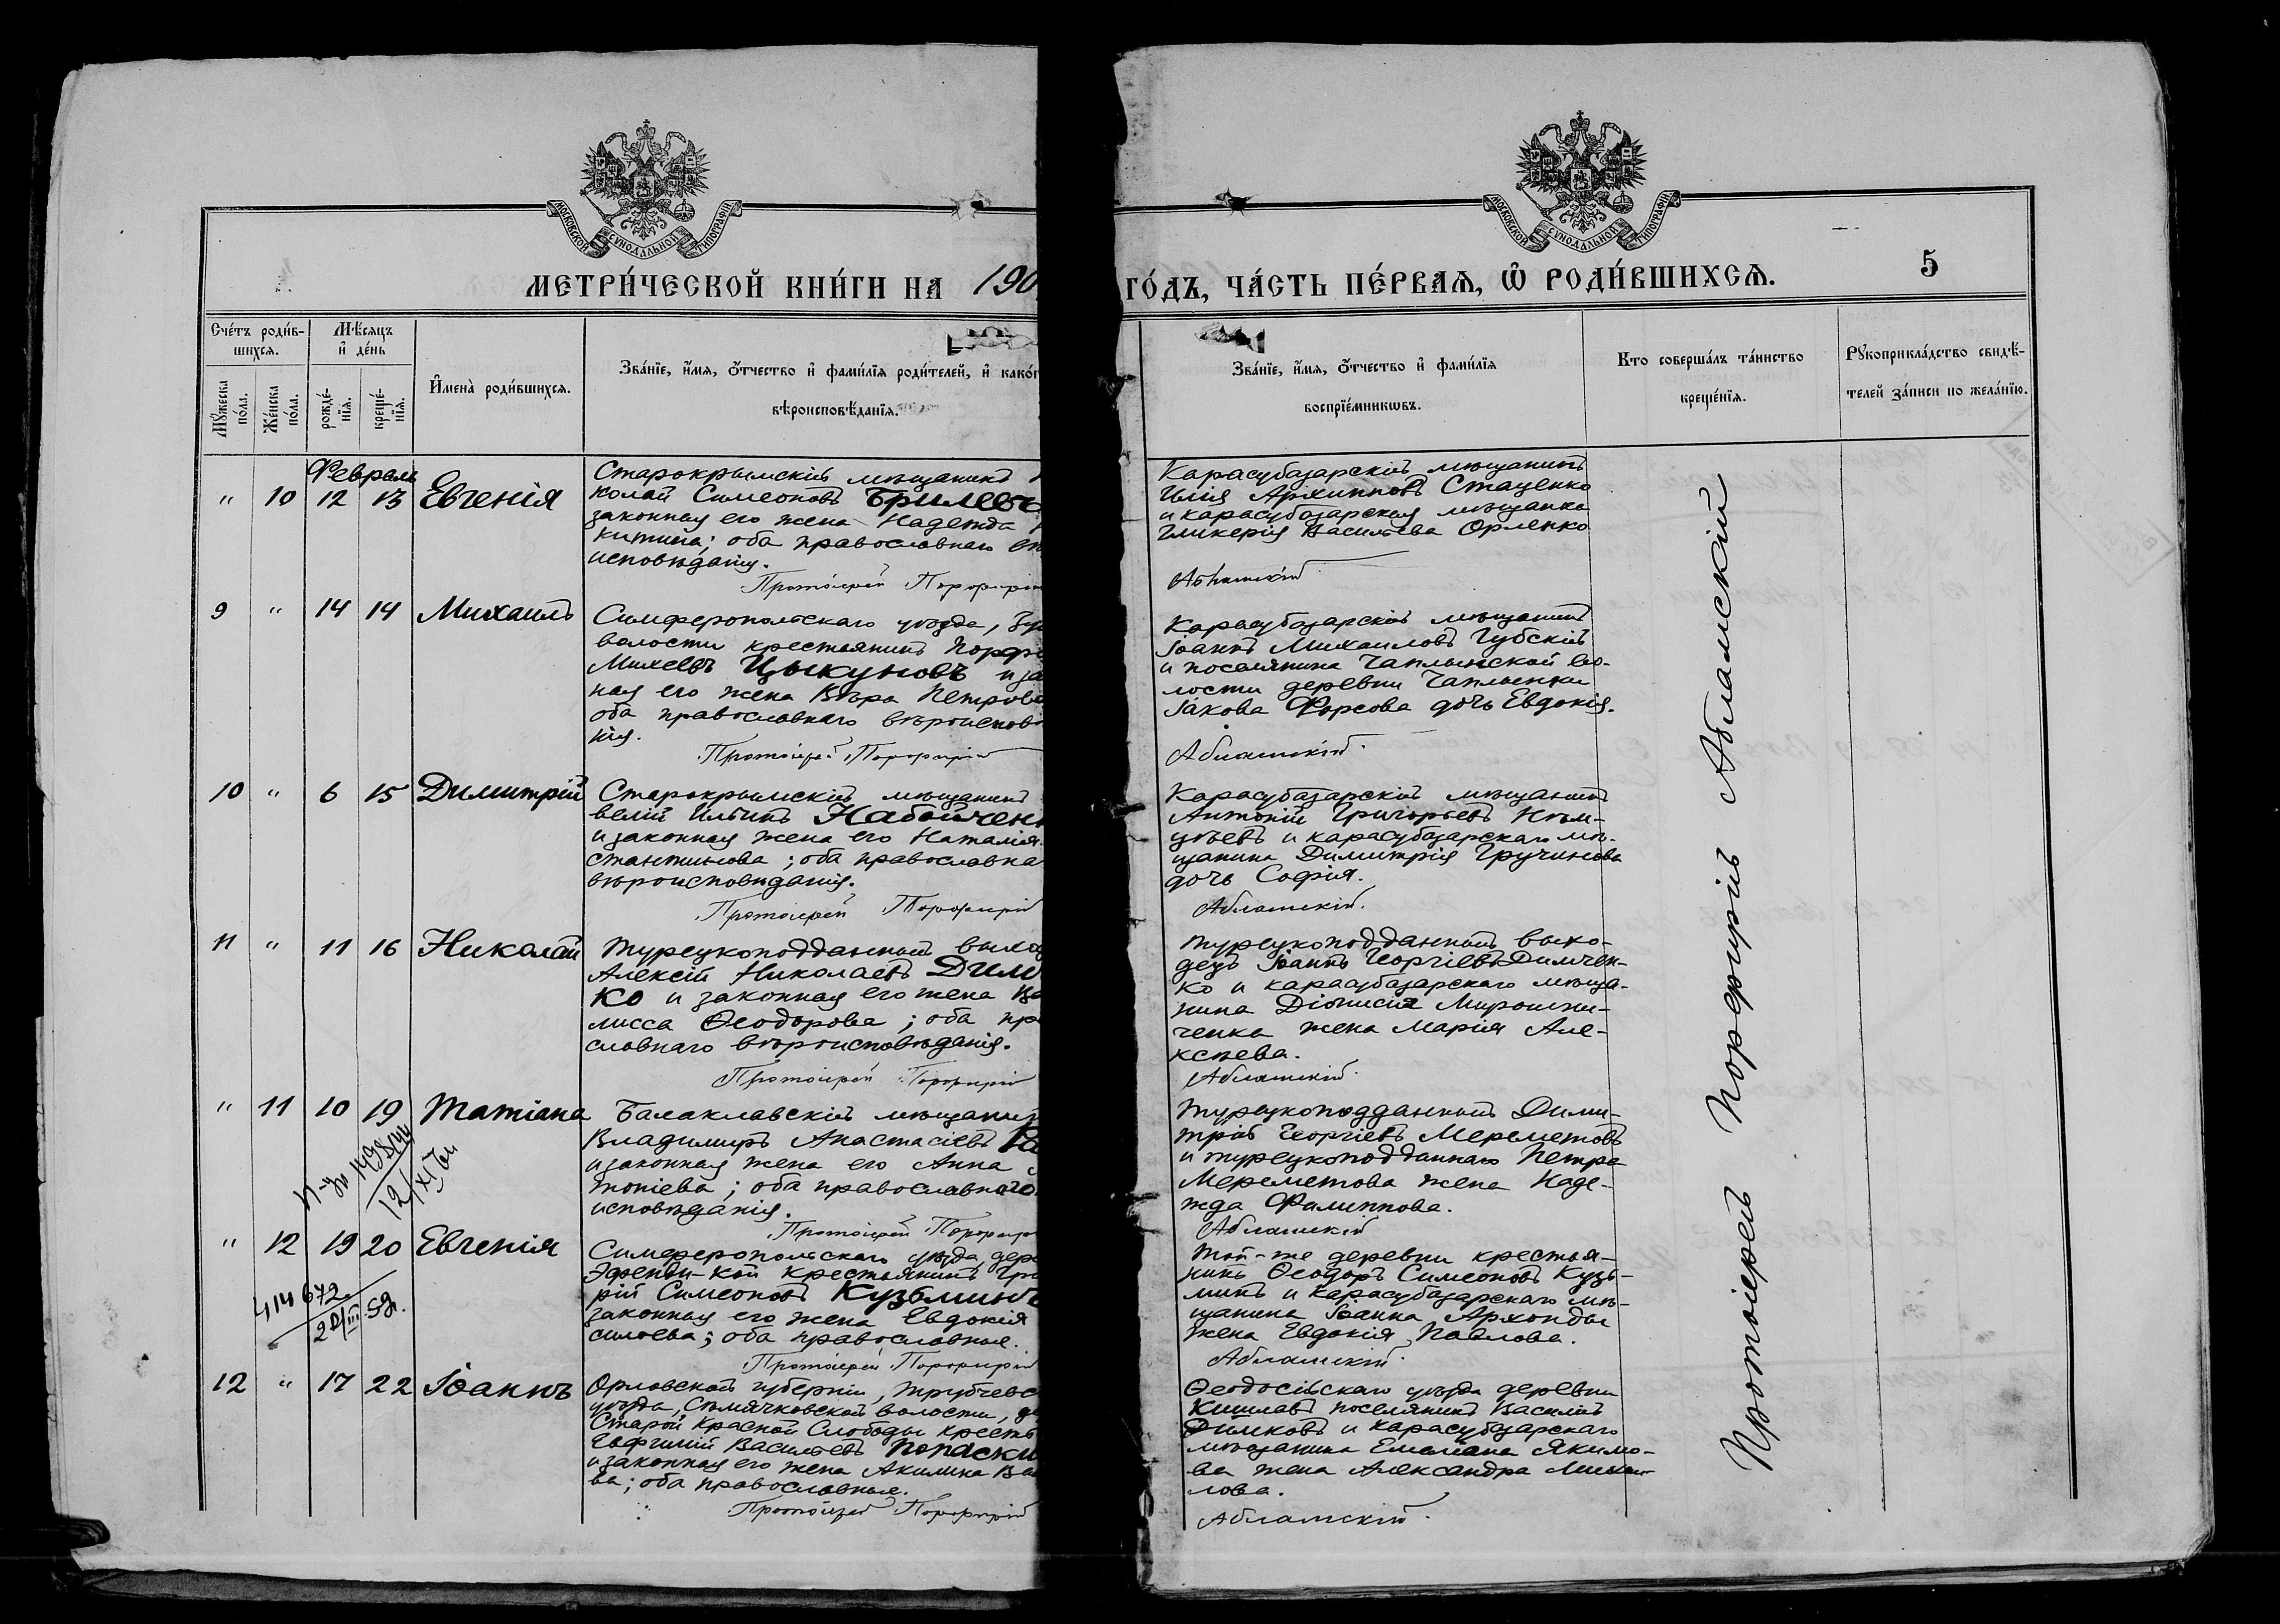 МОСКОВСКОЙ СѴНОДАЛЬНОЙ ТИПОГРАФІИ
МОСКОВСКОЙ СѴНОДАЛЬНОЙ ТИПОГРАФІИ
5
МЕТРИ́ЧЕСКОЙ КНИ́ГИ НА 190
ГО́ДЪ, ЧА́СТЬ ПЕ́РВАѦ, Ѡ҆ РОДИ́ВШИХСѦ.
Сче́тъ роди́в-
шихсѧ.
Мꙋ́жеска по́ла.
Же́нска по́ла.
Мѣ́сѧцъ
и҆ де́нь
рожде́-
нїѧ.
креще́-
нїѧ.
И҆мена̀ роди́вшихсѧ.
Зва́нїе, и҆́мѧ, ѻ҆́тчество и҆ фами́лїѧ роди́телей, и҆ како́г
вѣроисповѣ́данїѧ.
Зва́нїе, и҆́мѧ, ѻ҆́тчество и҆ фами́лїѧ
воспрїе́мникѡвъ.
Кто соверша́лъ та́инство
креще́нїѧ.
Рꙋкоприкла́дство свидѣ́-
телей за́писи по жела́нїю.
Февраль
" 10 12 13 Евгенія
Старокрымскій мѣщанинъ
колай Симеоновъ Брилевъ
законная его жена Надежда
китина; оба православнаго
исповѣданія.
Протоіерей Порфирій
Карасубазарскій мѣщанинъ
Илія Архипповъ Стаценко
и карасубазарская мѣщанка
Гликерія Васильева Орленко
Абламскій
9 " 14 14 Михаилъ
Симферопольскаго уѣзда,
волости крестьянинъ Порфи
Михеевъ Цыкуновъ и за
ная его жена Вѣра Петрова
оба православнаго вѣроисповѣ
нія.
Протоіерей Порфирій
Карасубазарскій мѣщанинъ
Іоаннъ Михаиловъ Губскій
и поселянина Чаплинской во-
лости деревни Чаплынки
Іакова Форсова дочь Евдокія.
Абламскій
10 " 6 15 Димитрій
Старокрымскій мѣщанинъ
велій Ильинъ Набойчен
и законная жена его Наталія
стантинова; оба православна
вѣроисповѣданія.
Протоіерей Порфирій
Карасубазарскій мѣщанинъ
Антоній Григорьевъ Нѣм-
цѣевъ и карасубазарскаго мѣ-
щанина Димитрія Гручинова
дочь Софія.
Абламскій.
11 " 11 16 Николай
Турецкоподданный выхо
Алексій Николаевъ Дим
ко и законная его жена Ва
лисса Ѳеодорова; оба пра
славнаго вѣроисповѣданія.
Протоіерей Порфирій
Турецкоподданный выхо-
децъ Іоаннъ Георгіевъ Димчен-
ко и карасубазарскаго мѣща-
нина Діонисія Мирошни-
ченка жена Марія Але-
ксѣева.
Абламскій
" 11 10 19 Татіана
Балаклавскій мѣщанин
Владимиръ Анастасіевъ
и законная жена его Анна
тоніева; оба православнаго
исповѣданія.
Протоіерей Порфир
Турецкоподданный Дими-
трій Георгіевъ Мереметовъ
и турецкоподданнаго Петра
Мереметова жена Наде-
жда Филиппова.
Абламскій
" 12 19 20 Евгенія
414672
20/III 59.
Симферопольскаго уѣзда дер
Эфенди-кой крестьянинъ Гри
рій Симеоновъ Кузьминъ
законная его жена Евдокія
сильева; оба православные.
Протоіерей Порфирій
Той-же деревни крестья-
нинъ Ѳеодоръ Симеоновъ Кузь-
минъ и карасубазарскаго мѣ-
щанина Іоанна Архонды
жена Евдокія Павлова.
Абламскій
12 " 17 22 Іоаннъ
Орловской губерніи, Трубчевс
уѣзда, Сѣмячковской волости, д
Старой Красной Слободы кресть
Евфимій Васильевъ Попаски
и законная его жена Акилина Ва
ва; оба православные.
Протоіерей Порфирій
Ѳеодосійскаго уѣзда деревни
Кишлавъ поселянинъ Василій
Димковъ и карасубазарскаго
мѣщанина Емеліана Якимо-
ва жена Александра Михаи-
лова.
Абламскій
Протоіерей Порфирій Абламскій